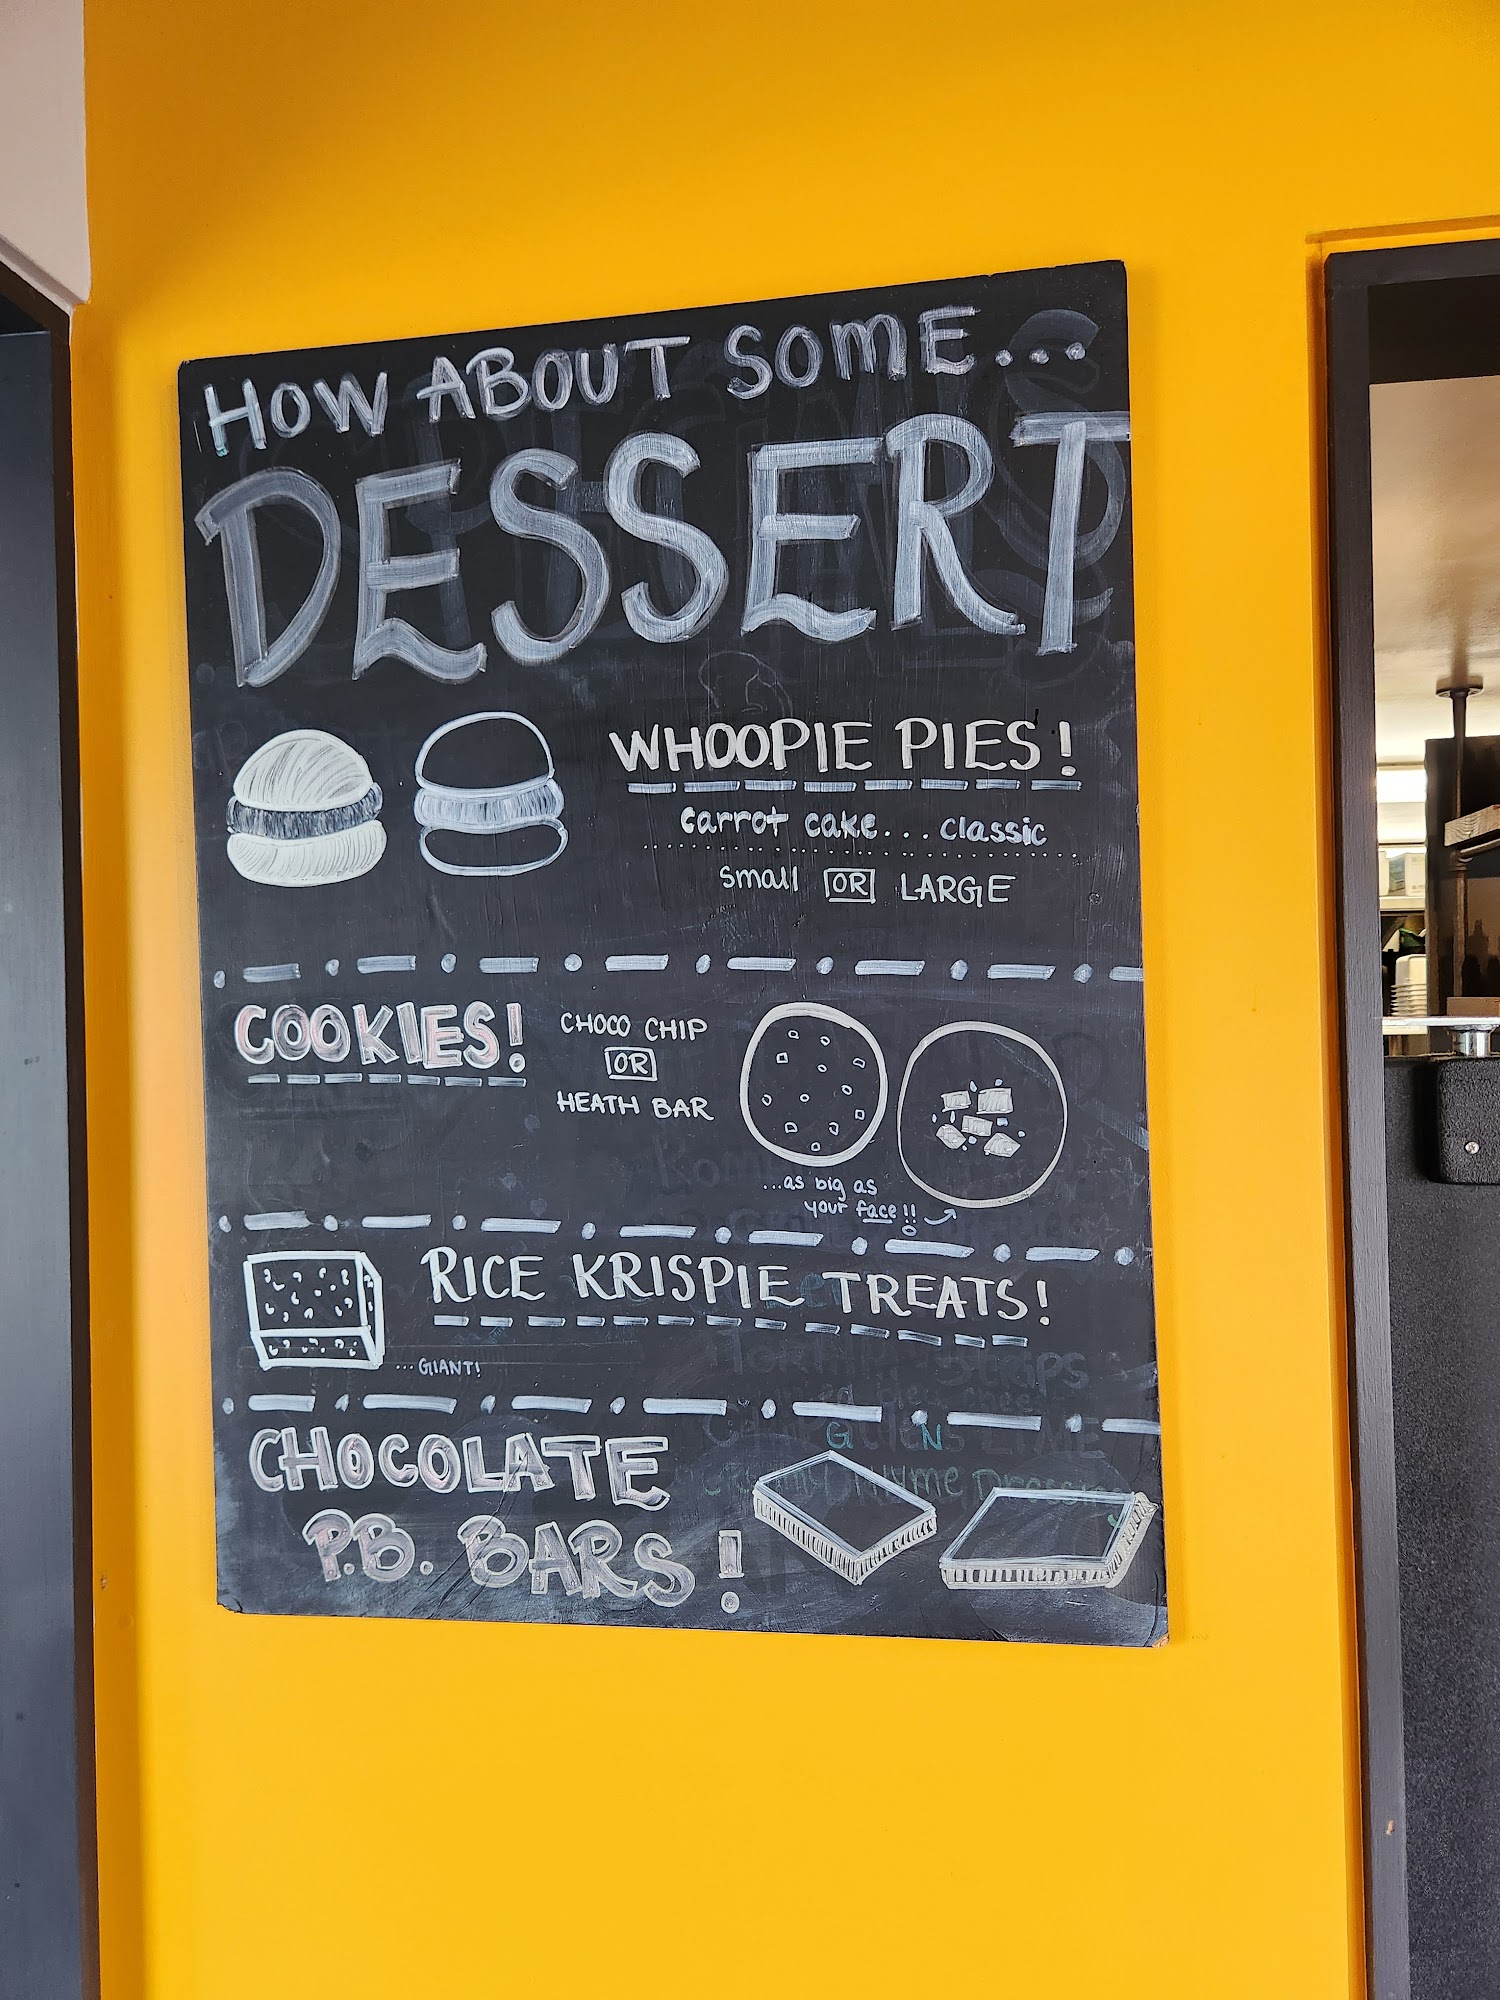 HOW ABOUT SOME...
DESSERT
WHOOPIE PIES!
carrot cake... classic
small OR LARGE
COOKIES!
CHOCO CHIP
OR
HEATH BAR
...as big as
your face!!
RICE KRISPIE TREATS!
...GIANT!
CHOCOLATE
P.B. BARS!